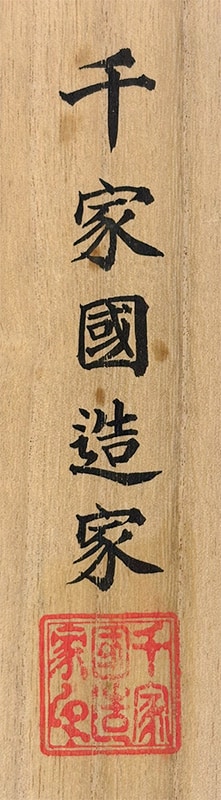 千家國造家
千家
國造
家